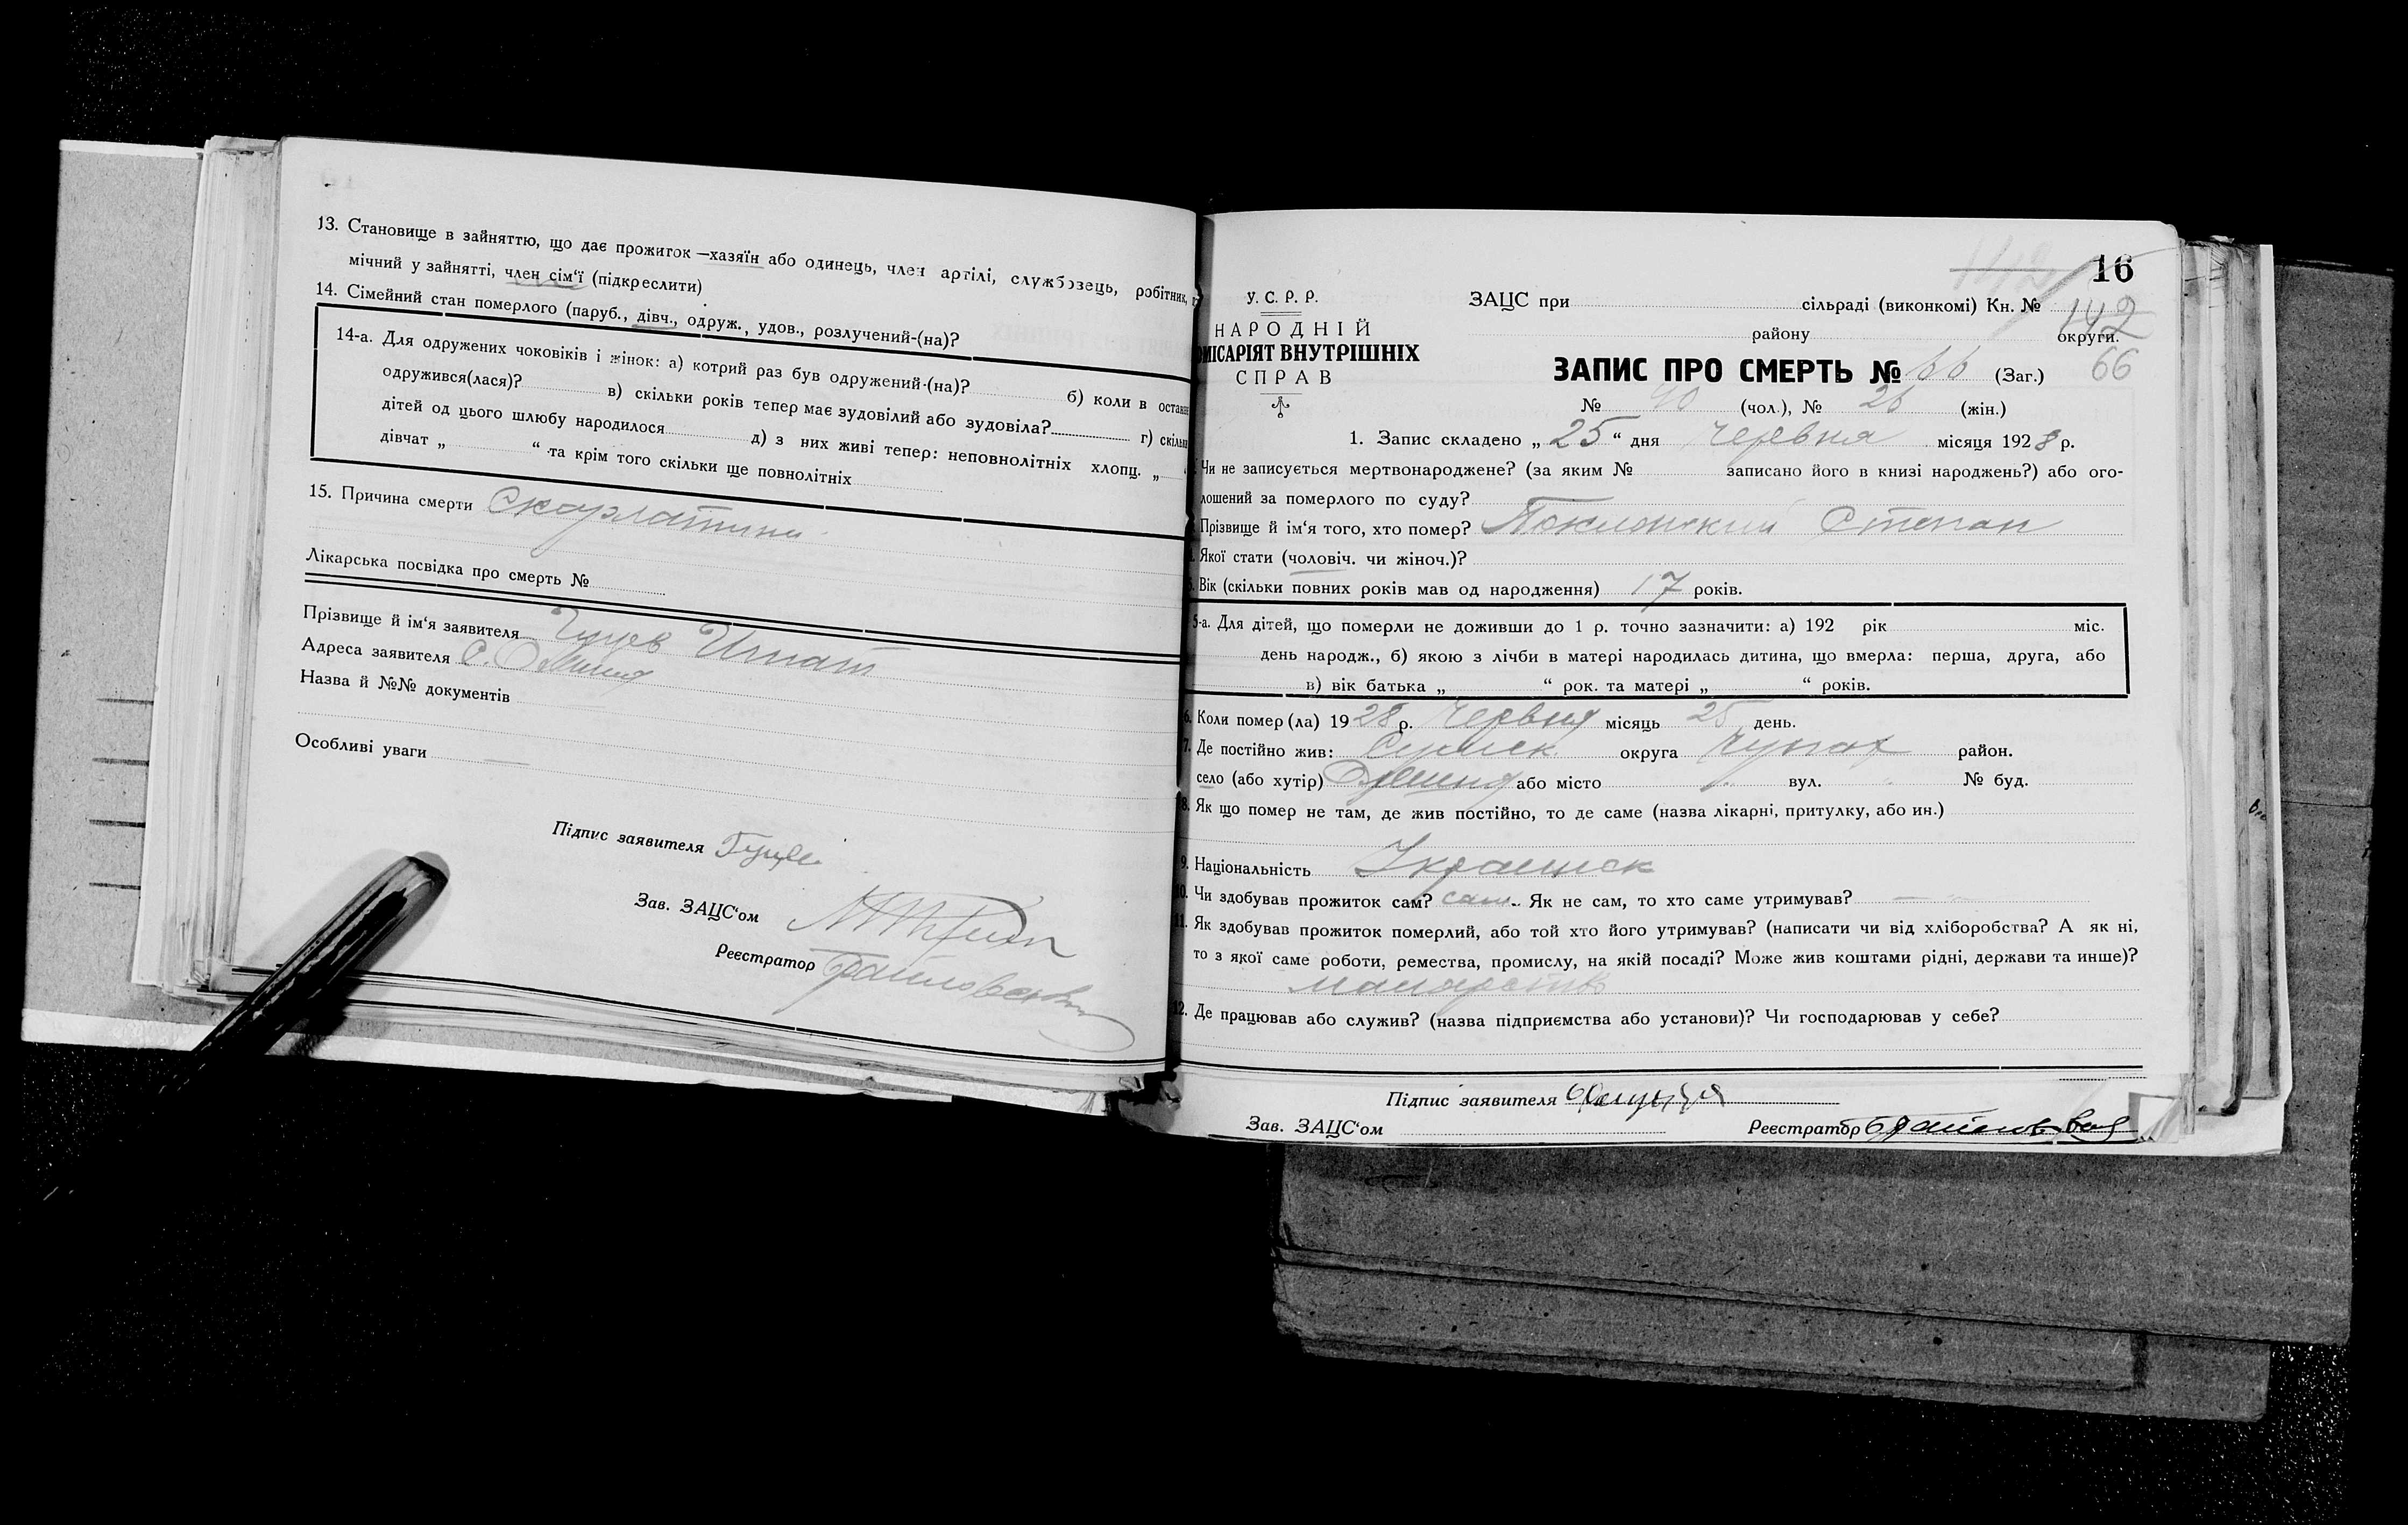 13. Становище в зайняттю, що дає прожиток—хазяїн або одинець, член артілі, службовець, робітник,
мічний у зайнятті, член сім'ї (підкреслити)
14. Сімейний стан померлого (паруб., дівч., одруж., удов., розлучений-(на)?
14-а. Для одружених чоковіків і жінок: а) котрий раз був одружений-(на)? б) коли в останн
одружився(лася)? в) скільки років тепер має зудовілий або зудовіла? г) скільк
дітей од цього шлюбу народилося д) з них живі тепер: неповнолітніх хлопц. „
дівчат „ “ та крім того скільки ще повнолітніх
15. Причина смерти Скарлатина
Лікарська посвідка про смерть №
Прізвище й ім'я заявителя Гуцев Игнат
Адреса заявителя С.
Назва й №№ документів
Особливі уваги —
Підпис заявителя
Зав. ЗАЦС'ом
Реєстратор
16
142
У. С. Р. Р.
НАРОДНІЙ
МІСАРІЯТ ВНУТРІШНІХ
СПРАВ
ЗАЦС при сільраді (виконкомі) Кн. № 142
району округи.
ЗАПИС ПРО СМЕРТЬ № 66 (Заг.) 66
№ 40 (чол.), № 26 (жін.)
1. Запис складено „ 25 “ дня червня місяця 1928 р.
Чи не записується мертвонароджене? (за яким № записано його в книзі народжень?) або ого-
лошений за померлого по суду?
Прізвище й ім'я того, хто помер? Поклонский Степан
Якої стати (чоловіч. чи жіноч.)?
Вік (скільки повних років мав од народження) 17 років.
5-а. Для дітей, що померли не доживши до 1 р. точно зазначити: а) 192 рік міс.
день народж., б) якою з лічби в матері народилась дитина, що вмерла: перша, друга, або
в) вік батька „ “ рок. та матері „ “ років.
6. Коли помер(ла) 1928 р. Червня місяць 25 день.
7. Де постійно жив: Сумск округа район.
село (або хутір) або місто вул. № буд.
8. Як що помер не там, де жив постійно, то де саме (назва лікарні, притулку, або ин.)
9. Національність
10. Чи здобував прожиток сам? сам. Як не сам, то хто саме утримував? —
11. Як здобував прожиток померлий, або той хто його утримував? (написати чи від хліборобства? А як ні,
то з якої саме роботи, ремества, промислу, на якій посаді? Може жив коштами рідні, держави та инше)?
12. Де працював або служив? (назва підприємства або установи)? Чи господарював у себе?
Підпис заявителя
Зав. ЗАЦС'ом Реєстратор